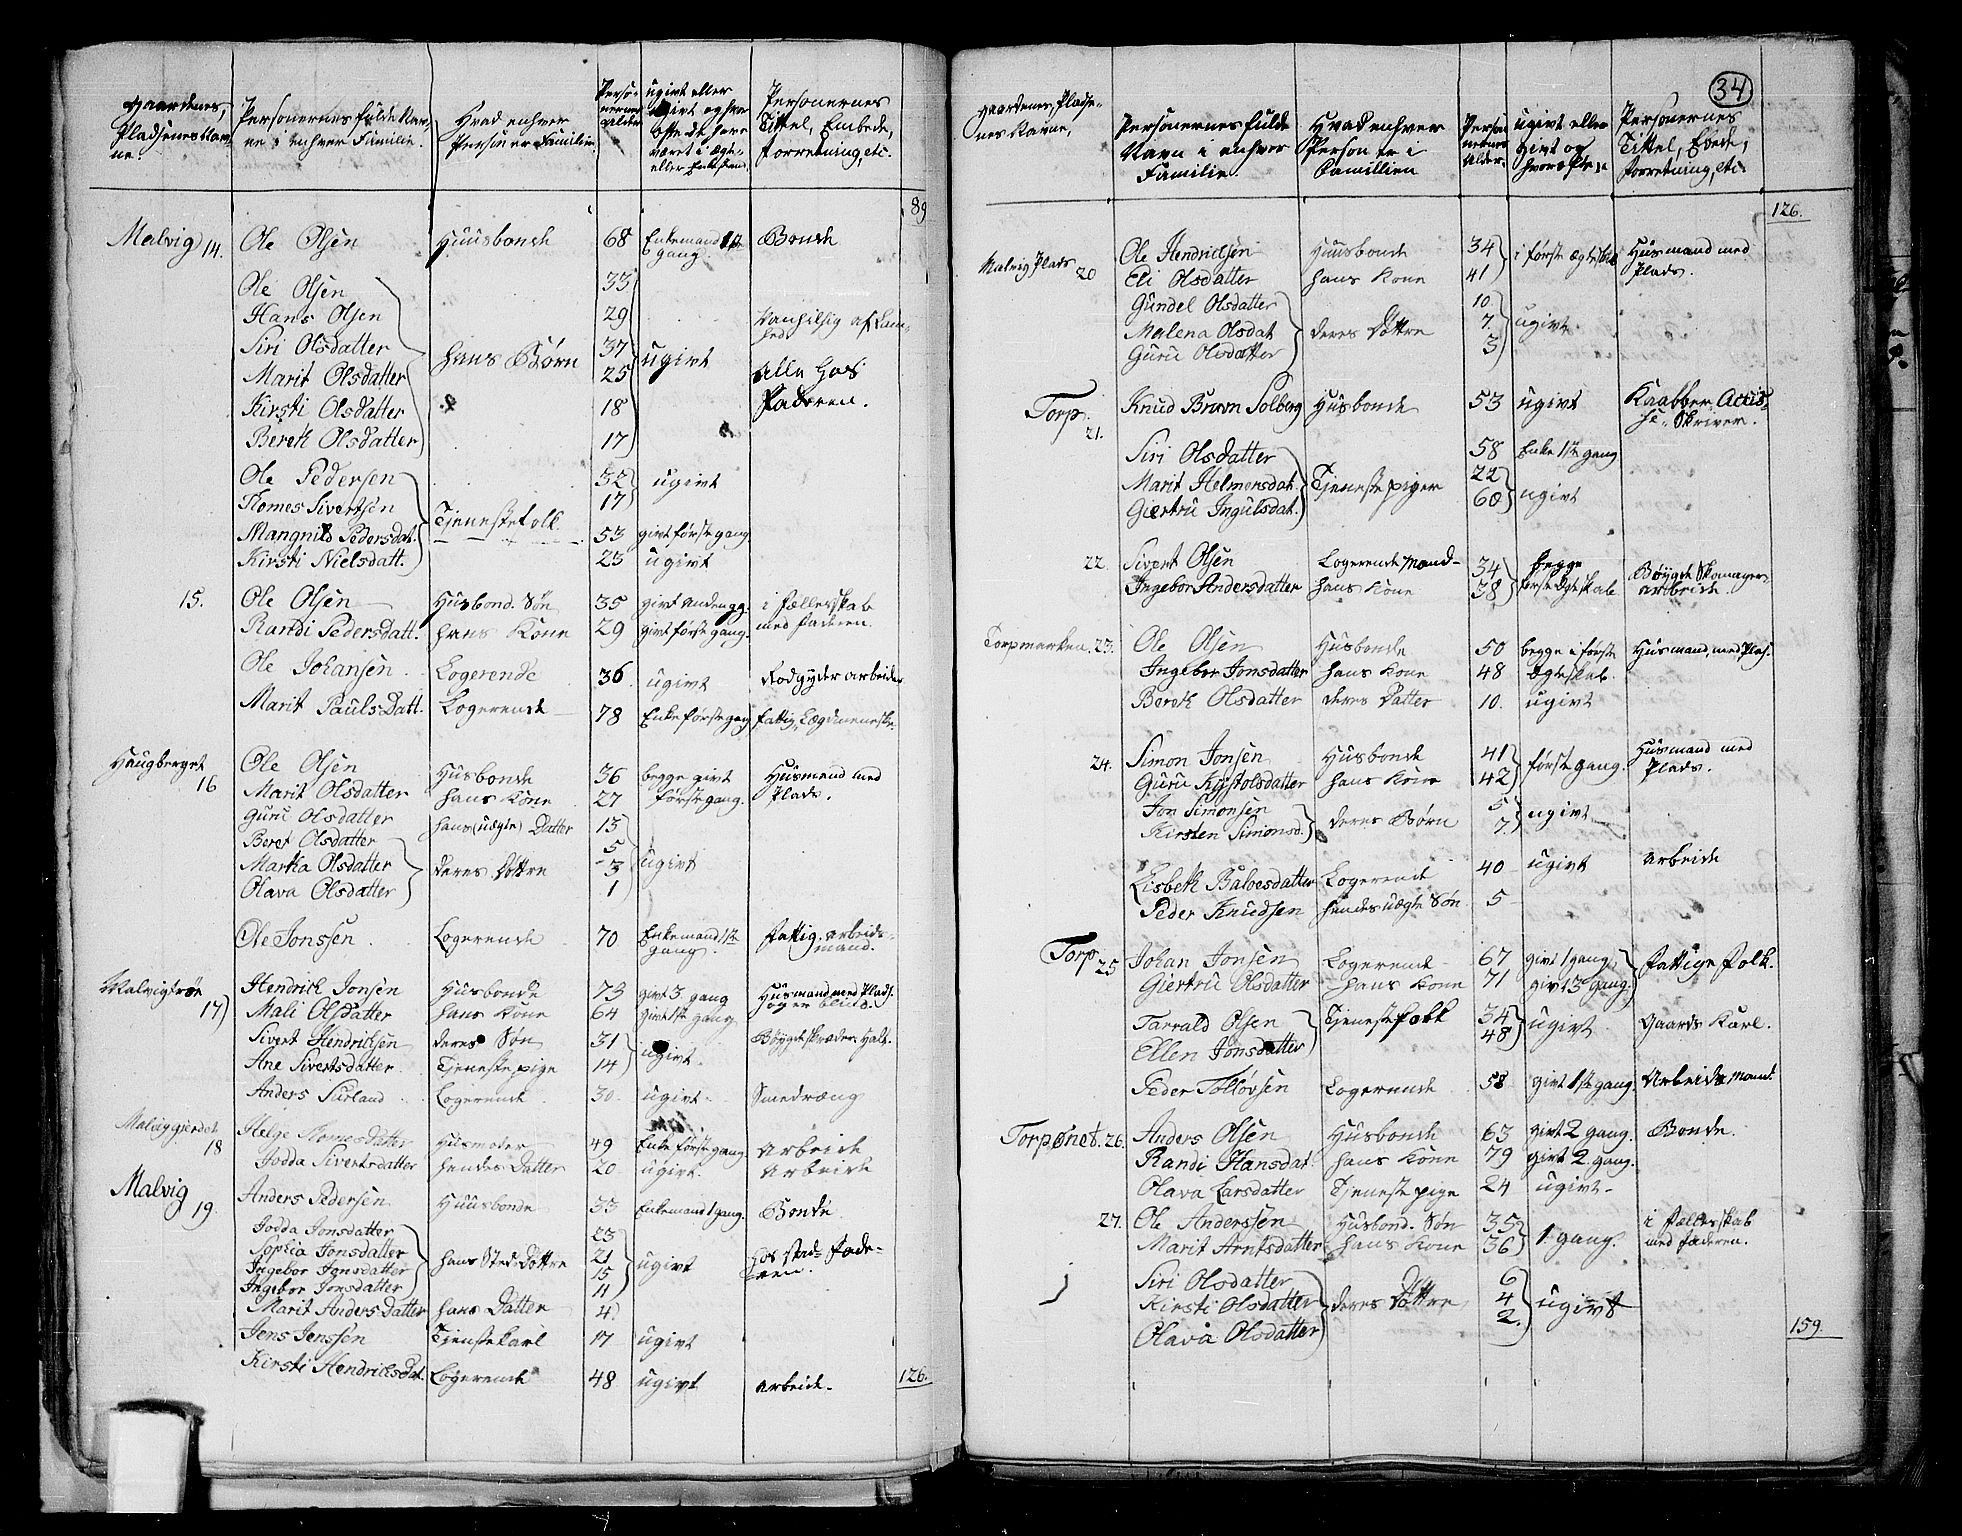 Gaardenes, Pladsenes Navne.
Personernes fulde Navne i enhver Familie.
Hvad enhver Person er i Familien.
Personernes Alder
ugivt eller givt og hvor ofte de have været i Ægte- eller Enkestand.
Personernes Tittel, Embede, Forretning, etc.
89
Malvig 14. Ole Olsen Huusbonde 68 Enkemand 1ste gang. Bonde
Ole Olsen 33
Hans Olsen 29 Vanhilsig af Lamhed
Siri Olsdatter hans Børn 37 ugivt Alle hos
Marit Olsdatter 25 Faderen.
Kirsti Olsdatter 18
Bereth Olsdatter 17
Ole Pedersen 32 ugivt
Tomes Sivertsen Tjenestefolk 17
Mangnild Pedersdat. 53 givt første gang
Kirsti Nielsdatt. 23 ugivt
15. Ole Olsen Husbond. Søn 35 givt Anden gg. i fællesskab
Randi Pedersdatt. hans Kone 29 givt første gang. med Faderen.
Ole Johansen Logerende 36 ugivt Rodgyder arbeider
Marit Paulsdatt. Logerende 78 Enke første gang fattig Lægdmeneske.
Haugberget 16 Ole Olsen Husbonde 36 begge givt Husmand med
Marit Olsdatter hans Kone 27 første gang. Plads.
Guru Olsdatter hans (uægte) Datter 13
Beret Olsdatter 5
Martha Olsdatter deres Døttre 3 ugivt
Olava Olsdatter 1
Ole Jonssen Logerende 70 Enkemand 1ste gang. Fattig. arbeidsmand.
Malvigtrøe 17) Hendrich Jonsen Husbonde 73 givt 3 gang Husmand med Plads.
Mali Olsdatter hans Kone 64 givt 1ste gang og er blind.
Sivert Hendriksen deres Søn 31 ugivt. Bøygdeskræder. Halt.
Ane Sivertsdatter Tjenestepige 14
Anders Surland Logerende 30 ugivt Smedræng
Malviggierdet 18 Helge Tomesdatter Husmoder 49 Enke første gang Arbeide
Jodda Sivertsdatter hendes Datter 20 ugivt. Arbeide
Malvig 19. Anders Pedersen Huusbonde 33 Enkemand 1 gang. Bonde
Jodda Jonsdatter 23
Sophia Jonsdatter hans Sted-Døttre 21 ugivt hos Sted-Faderen.
Ingebor Jonsdatter 15
Ingebor Jonsdatter 11
Marit Anders Datter hans Datter 4
Jens Jenssen Tjenstekarl 17 ugivt
Kirsti Hendrichsdat. Logerende 48 ugivt arbeide.
126.
34
Gaardenes, Pladsenes Navne,
Personernes fulde Navn i enhver Familie
Hvad enhver Person er i Famillien
Personernes Alder.
ugivt eller givt og hvor ofte:
Personernes Tittel, Ebede, forretning, etc.
126.
Malvig Plads 20 Ole Hendrichsen Huusbonde 34 i første Ægteskab Husmand med
Eli Olsdatter hans Kone 41 Plads.
Gundel Olsdatter 10
Malena Olsdat deres Døttre 7 ugivt
Guru Olsdatter 3
Torp. 21. Knud Bruun Solberg Husbonde 53 ugivt Kaabber Accise-Skriver.
Siri Olsdatter 58 Enke 1ste gang
Marit Helmersdat. Tjenestepiger 22 ugivt
Giertru Ingulsdat. 60
22. Sivert Olsen Logerende Mand 34 begge Bøygde Skomager
Ingebor Andersdatter hans Kone 38 første Ægteskab arbeide.
Torpmarken. 23. Ole Olsen Husbonde 50 begge i første Husmand, med Plads.
Ingebor Jonsdatter hans Kone 48 Ægteskab.
Bereth Olsdatter deres Datter 10. ugivt
24. Simon Jonsen Husbonde 41 første gang. Husmand med
Guru Kystolsdatter hans Kone 42 Plads.
Jon Simonsen deres Børn 5 ugivt
Kirsten Simonsd. 7
Lisbeth Baltesdatter Logerende 40 ugivt arbeide
Peder Knudsen hendes uægte Søn 5
Torp 25 Johan Jonsen Logerende 67 givt 1 gang Fattige Folk.
Giertru Olsdatter hans Kone 71 givt 3 gang.
Tarrald Olsen Tjenestefolk 34 ugivt Gaards Karl.
Ellen Jonsdatter 48
Peder Tolløvsen Logerende 58 givt 1ste gang. Arbeids Mand.
Torpønet. 26. Anders Olsen Husbonde 63 givt 2 gang. Bonde.
Randi Hansdat hans Kone 79 givt 2 gang.
Olava Larsdatter Tjenestepige 24 ugivt
27. Ole Anderssen Husbond. Søn 35 1 gang. i Fællesskab
Marit Arntsdatter hans Kone 36 med Faderen.
Siri Olsdatter 6
Kirsti Olsdatter deres Døttre 4 ugivt
Olava Olsdatter 2.
159.